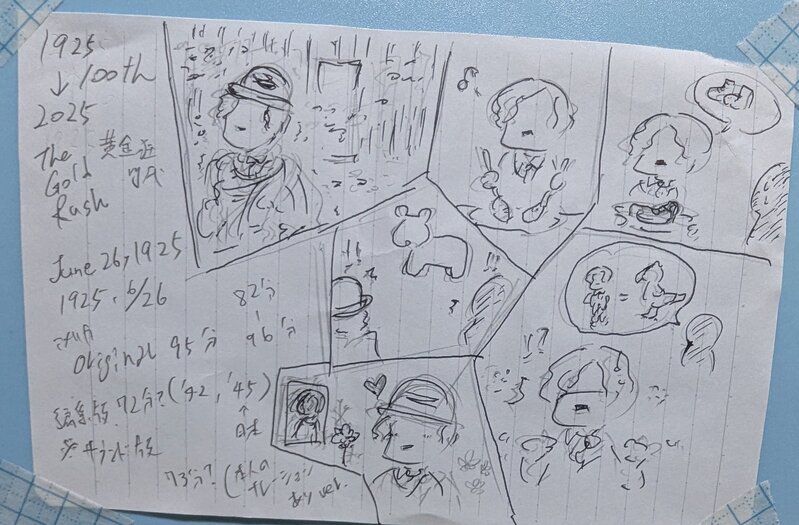 1925
↓ 100th
2025
The 黄金狂
Gold 時代
Rush
June 26, 1925
1925. 6/26
82分
Original 95分 96分
編集版 72分? ('42, '45)
↑
日本
※サウンド版
73分? (本人の
ナレーション
あり ver.